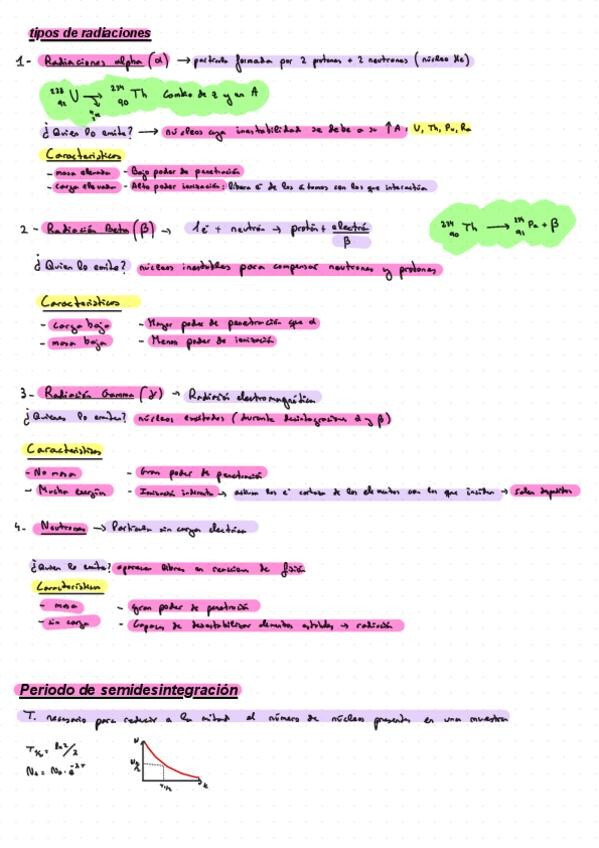 tipos de radiaciones
1- Radiaciones alpha (α) → partícula formada por 2 protones + 2 neutrones (núcleo He)
238 92 U → 234 90 Th Cambio de z y en A
¿Quien lo emite? → núcleos cuya inestabilidad se debe a su ↑A: U, Th, Pu, Ra
Características
- masa elevada - Bajo poder de penetración
- carga elevada - Alto poder ionización: libera e⁻ de los átomos con los que interactúa
2 - Radiación Beta (β) → 1e⁻ + neutrón → protón + electrón
β
234 90 Th → 234 91 Pa + β
¿Quien lo emite? núcleos inestables para compensar neutrones y protones
Características
- carga baja - Mayor poder de penetración que α
- masa baja - Menos poder de ionización
3 - Radiación Gamma (γ) → Radiación electromagnética
¿Quienes lo emiten? núcleos excitados (durante desintegraciones α y β)
Características
- No masa - Gran poder de penetración
- Mucha energía - Ionización indirecta → los e⁻ corteza de los elementos con los que → salen
4- Neutrones → Partícula sin carga eléctrica
¿Quien lo emite? aparecen libres en reacciones de fisión
Características
- masa - Gran poder de penetración
- sin carga - Capaces de desestabilizar elementos estables → radiación
Periodo de semidesintegración
T. necesario para reducir a la mitad el número de núcleos presentes en una muestra
T½ = ln2/λ
N = N₀ · e
N
N₀/2
T1/2 t